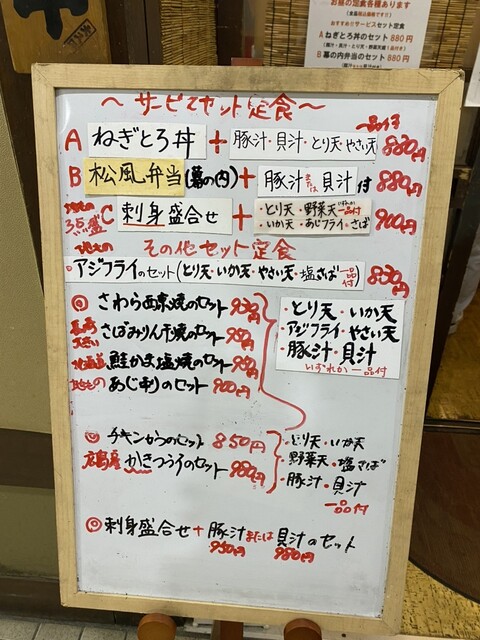 お昼の定食各種あります
おすすめサービスセット定食
Aねぎとろ丼のセット 880円
B幕の内弁当のセット 880円
〜サービスセット定食〜
A ねぎとろ丼 + 豚汁・貝汁・とり天・やさい天 一品付 880円
B 松風弁当(幕の内) + 豚汁または貝汁付 880円
3点盛 C 刺身盛合せ + ・とり天・野菜天 いずれか一品付 ・いか天・あじフライ・さば 900円
地元の その他セット定食
アジフライのセット(とり天・いか天・やさい天・塩さば一品付) 830円
◎さわら西京焼のセット 930円
さばみりん干焼のセット 950円
北海道 鮭かま塩焼のセット 950円
地もの あじ刺りのセット 900円
・とり天・いか天
・アジフライ・やさい天
・豚汁・貝汁
いずれか一品付
◎チキンかつのセット 850円
広島産 かきフライのセット 980円
・とり天・いか天
・野菜天・塩さば
・豚汁・貝汁
一品付
◎刺身盛合せ+豚汁または貝汁のセット
950円 980円